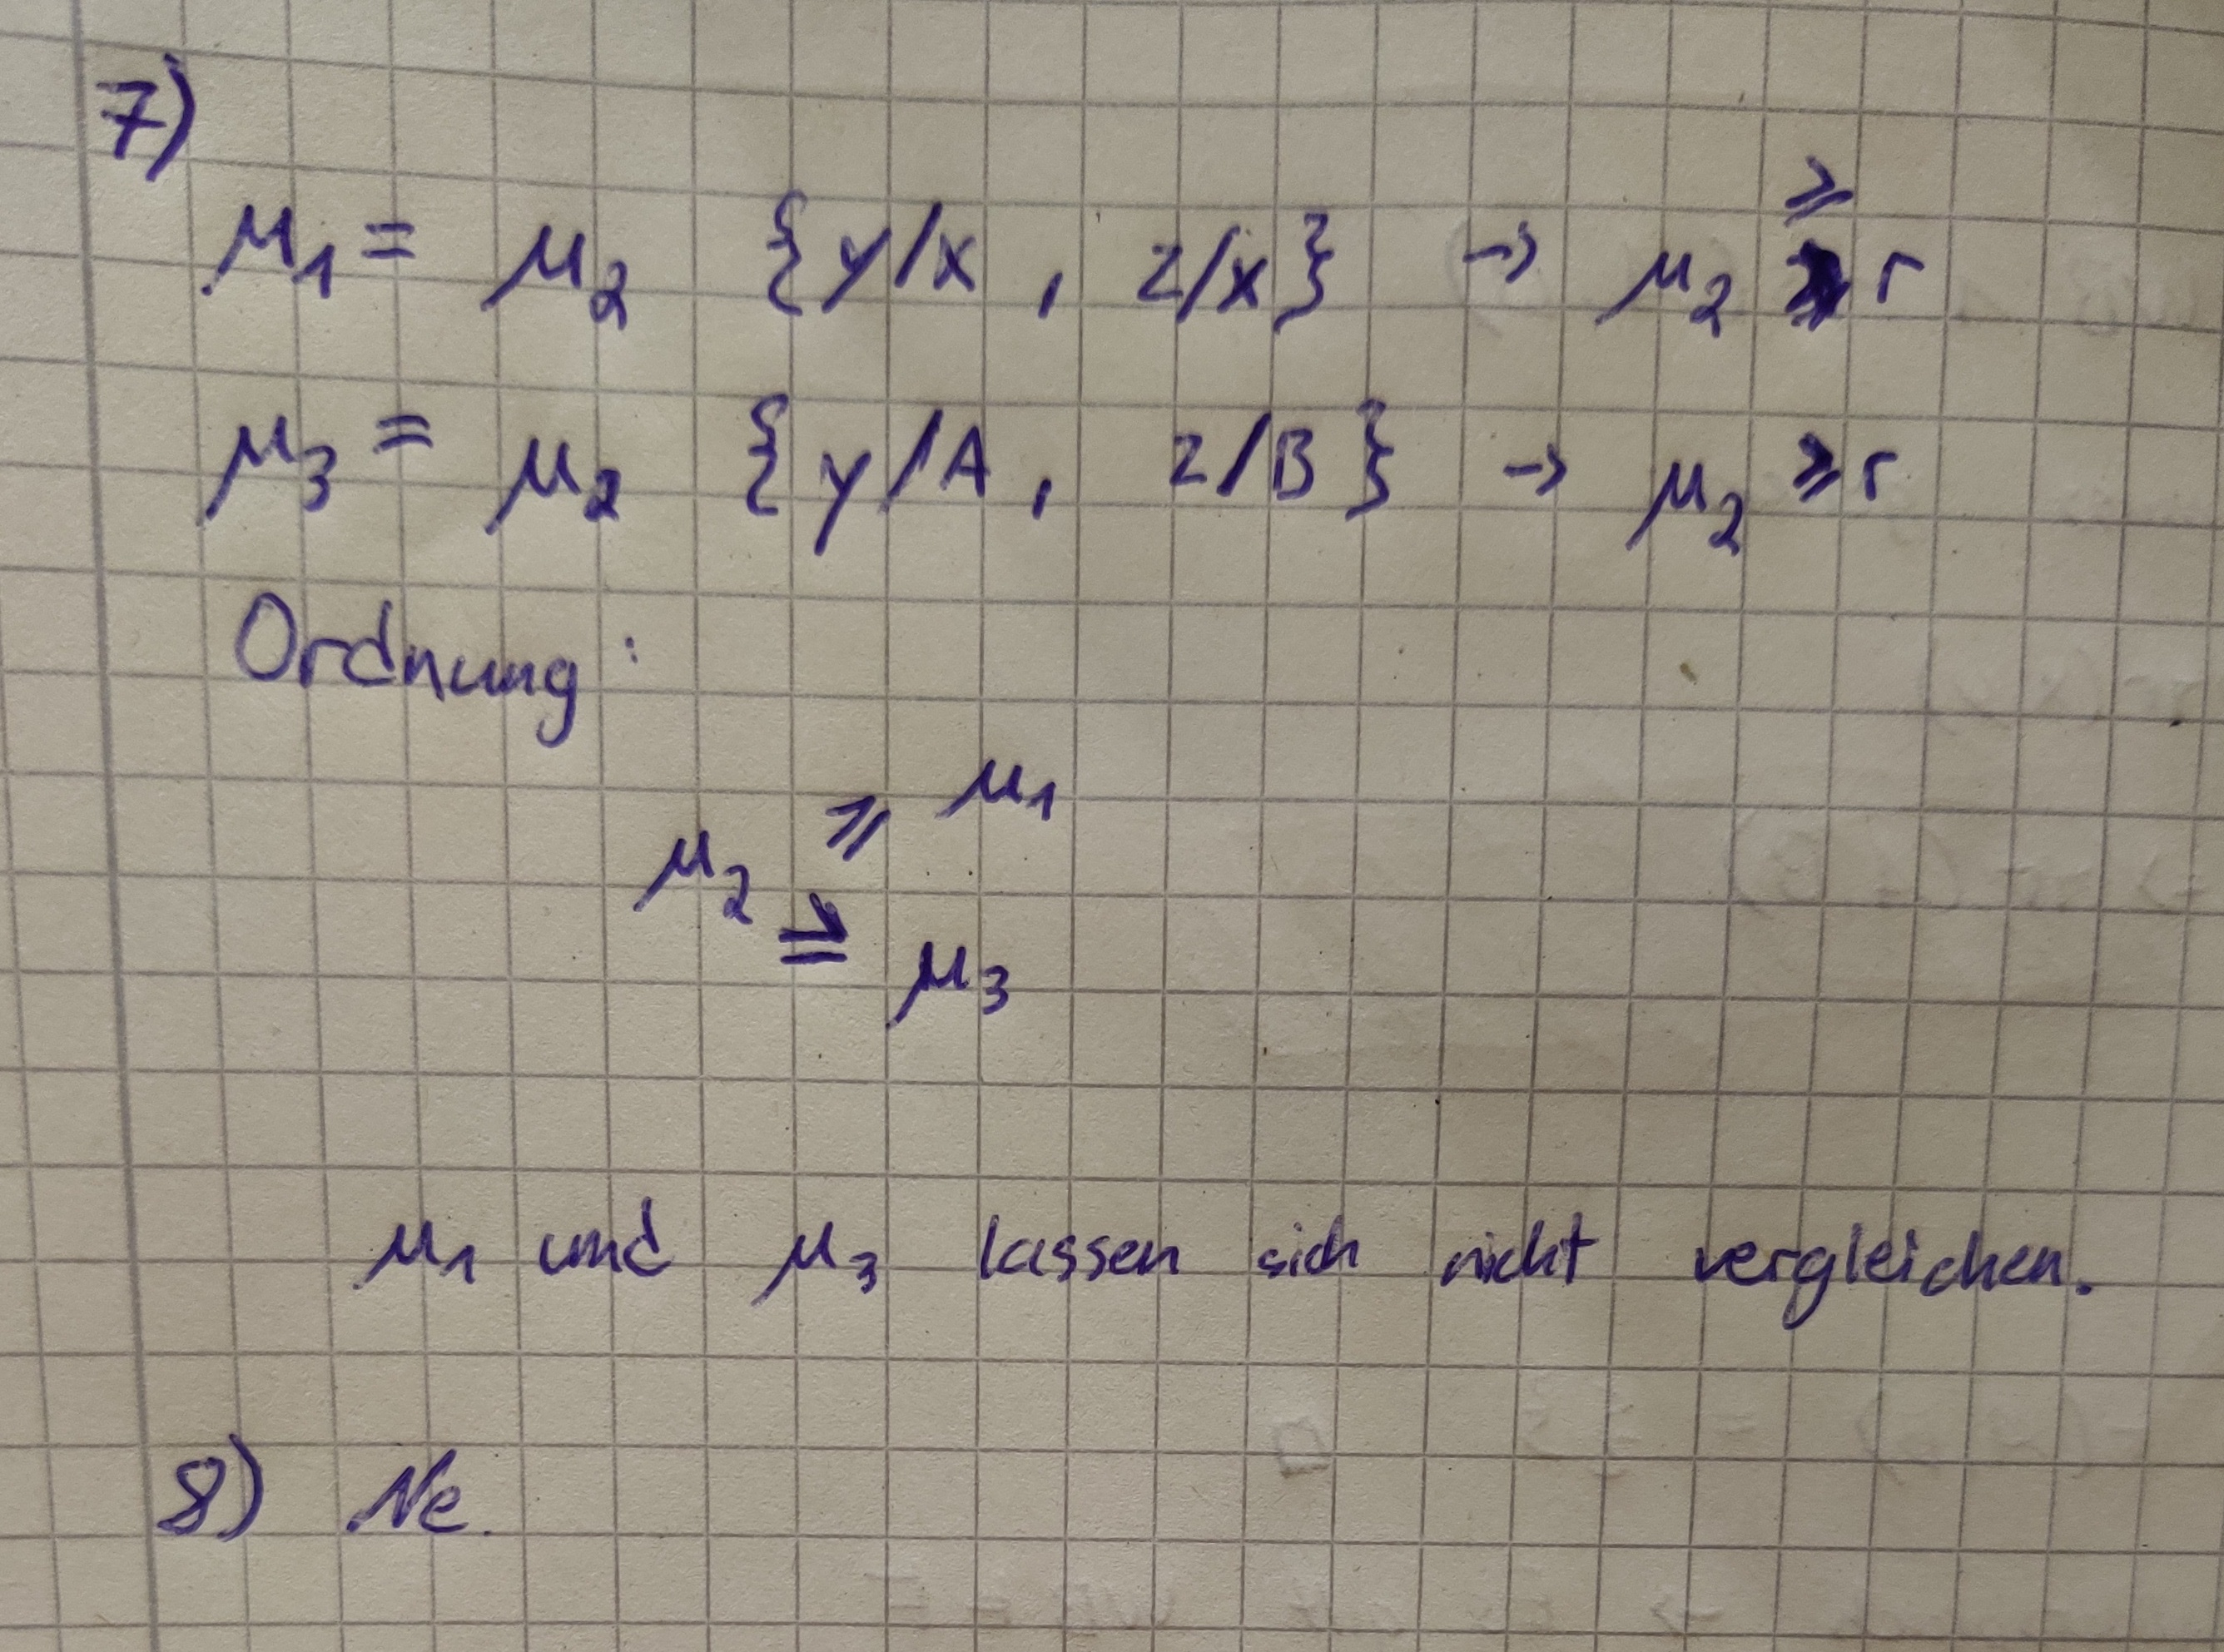 7)
μ₁ = μ₂ {y/x, z/x} → μ₂ ≥ r
μ₃ = μ₂ {y/A, z/B} → μ₂ ≥ r
Ordnung:
≥ μ₁
μ₂
≥ μ₃
μ₁ und μ₃ lassen sich nicht vergleichen.
8) Ne.